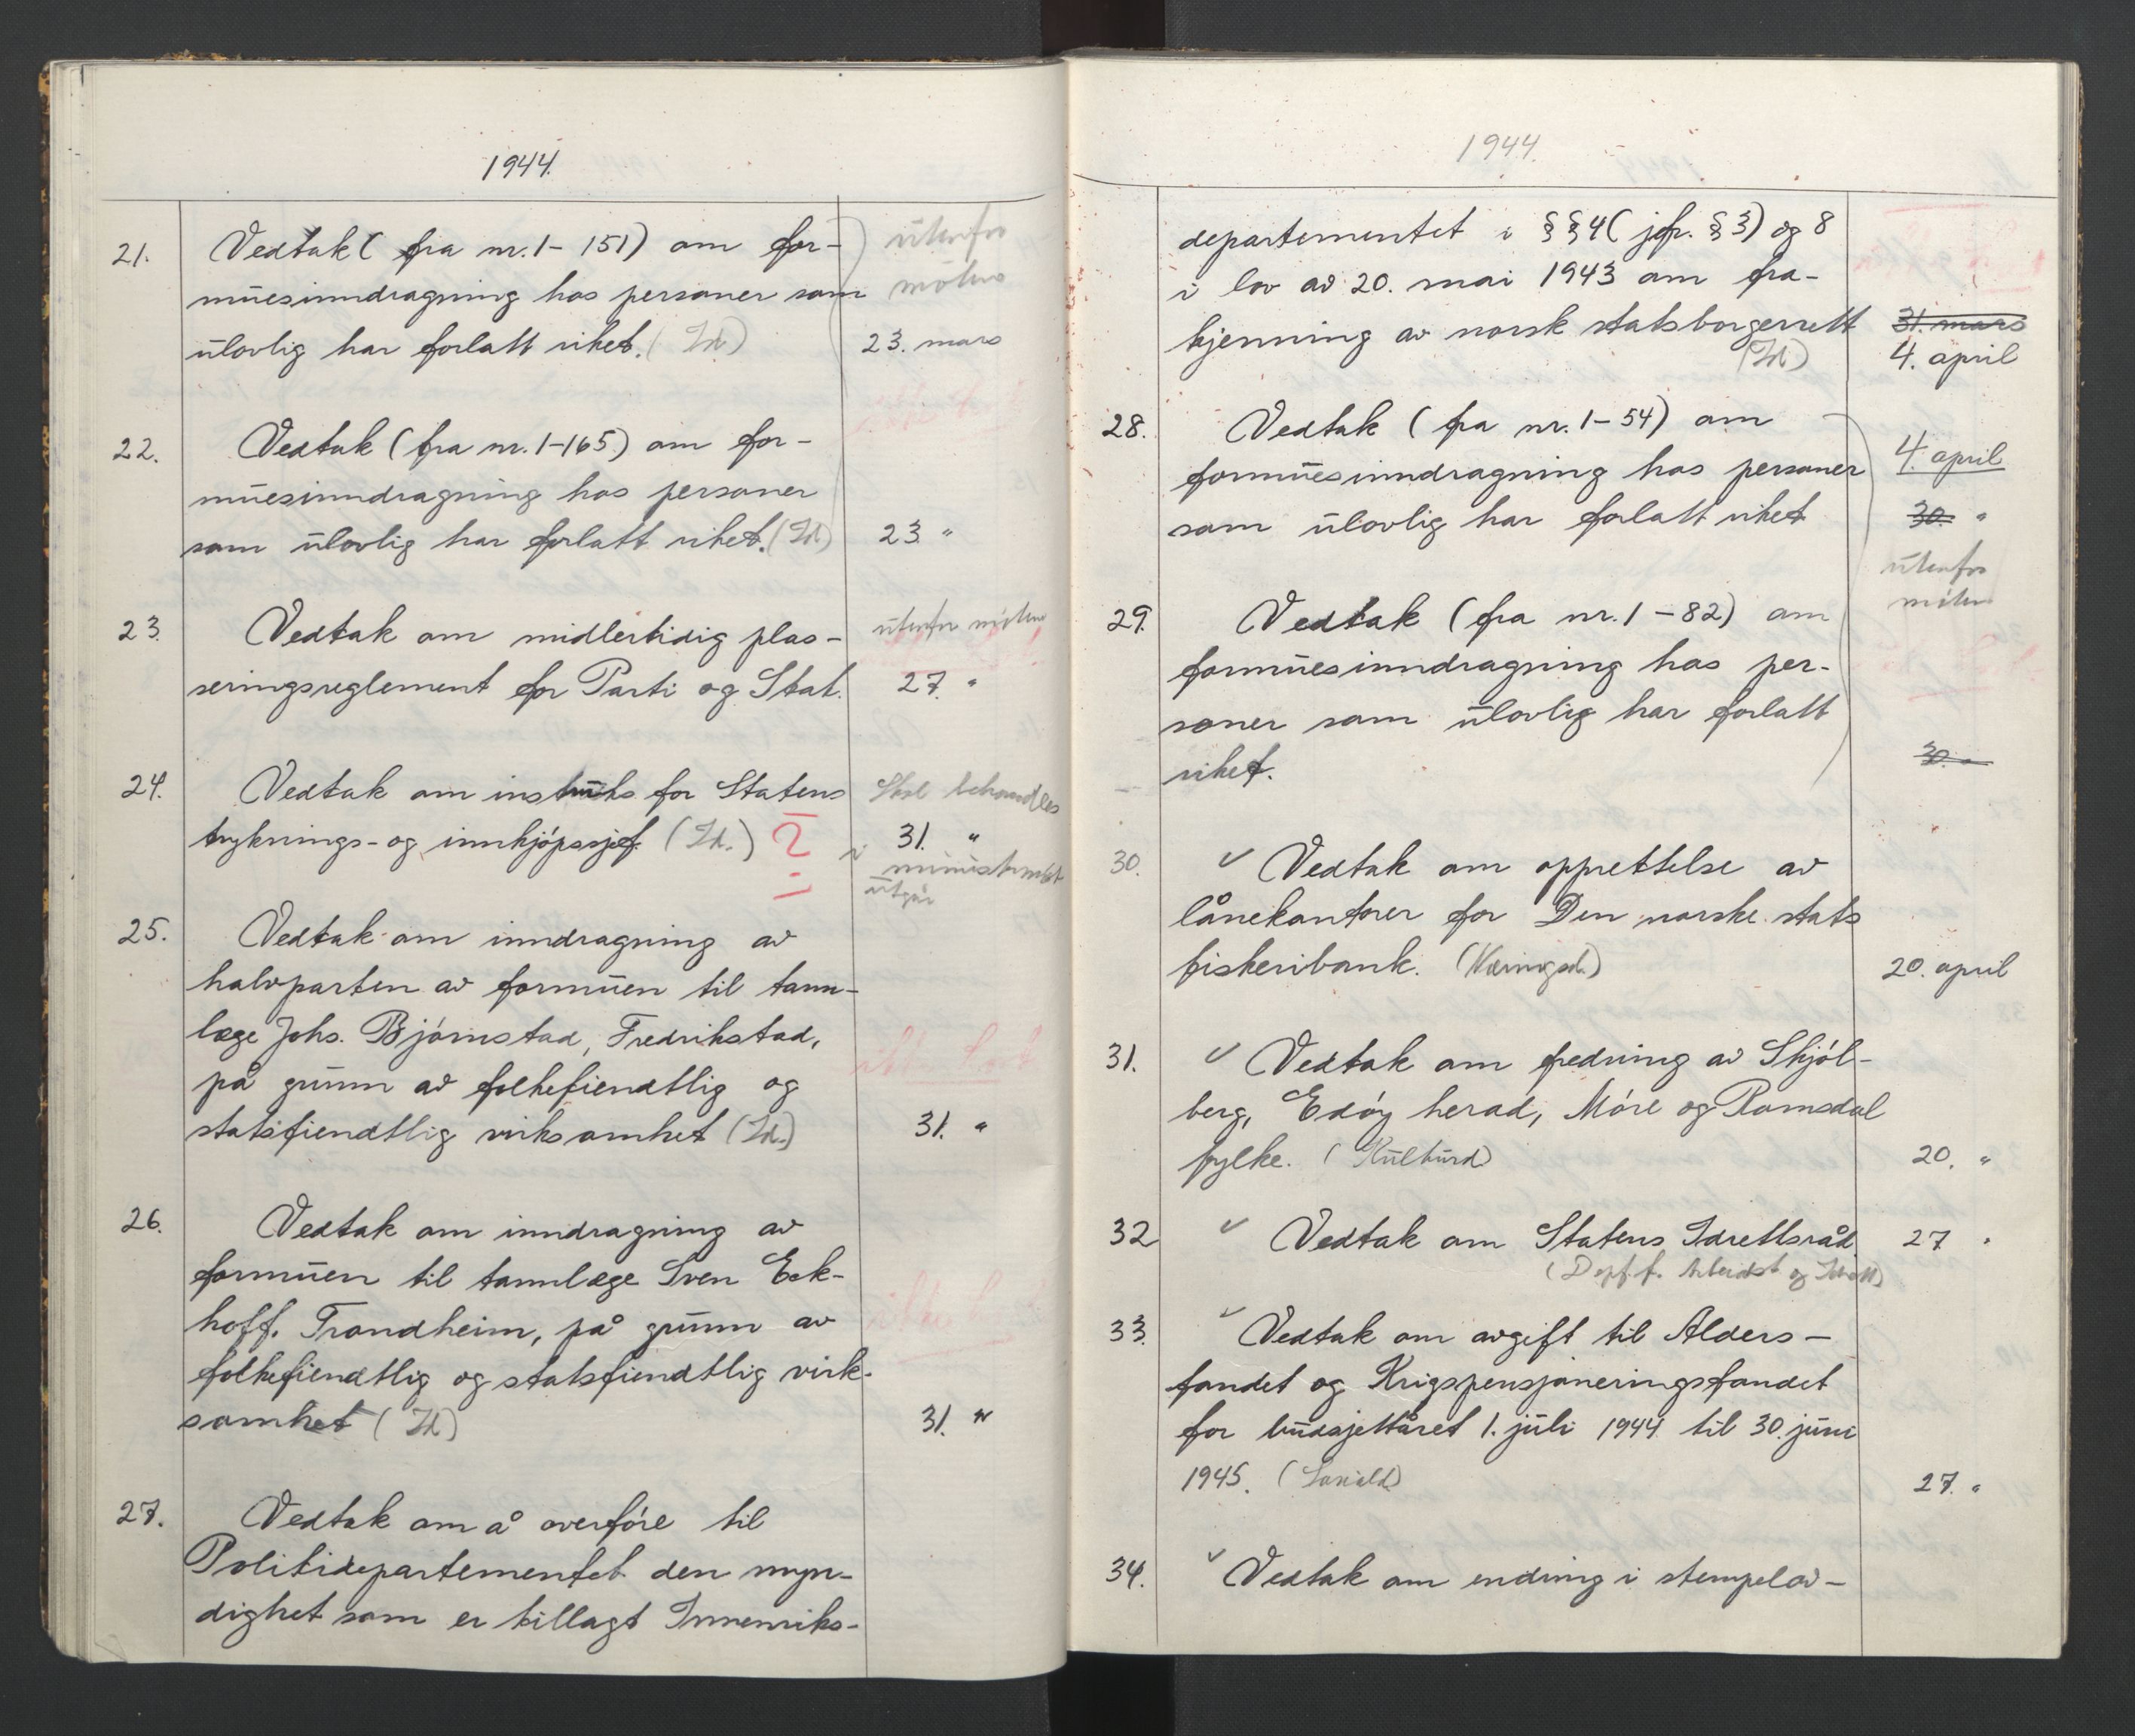 1944.
21. Vedtak (fra nr. 1-151) om for- utenfor
muesinndragning hos personer som møtene
ulovlig har forlatt riket. (Id) 23. mars
22. Vedtak (fra nr. 1-165) om for-
muesinndragning hos personer
som ulovlig har forlatt riket. (Id) 23. "
23. Vedtak om midlertidig plas- utenfor møtene
seringsreglement for Parti og Stat. 27. "
24. Vedtak om instruks for Statens Skal behandles
tryknings- og innkjøpssjef. (Id.) 31. "
i ministermøtet
utgår
25. Vedtak om inndragning av
halvparten av formuen til tann-
læge Johs. Bjørnstad, Fredrikstad,
på grunn av folkefiendtlig og
statsfiendtlig virksomhet (Id.) 31. "
26. Vedtak om inndragning av
formuen til tannlæge Sven Eck-
hoff. Trondheim, på grunn av
folkefiendtlig og statsfiendtlig virk-
somhet (Id) 31. "
27. Vedtak om å overføre til
Politidepartementet den myn-
dighet som er tillagt Innenriks-
1944.
departementet i §§4 (jfr. §3) og 8
i lov av 20. mai 1943 om fra-
kjenning av norsk statsborgerrett 31. mars
(Id) 4. april
28. Vedtak (fra nr. 1-54) om
formuesinndragning hos personer 4. april
som ulovlig har forlatt riket 30. "
utenfor
møtene
29. Vedtak (fra nr. 1-82) om
formuesinndragning hos per-
soner som ulovlig har forlatt
riket. 30. "
30. ✓ Vedtak om opprettelse av
lånekontorer for Den norske stats
fiskeribank. (Næringsd.) 20. april
31. ✓ Vedtak om fredning av Skjøl-
berg, Edøy herad, Møre og Romsdal
fylke. (Kulturd) 20. "
32 ✓ Vedtak om Statens Idrettsråd 27 "
(Dep. f. Arbeidst og Idrett)
33. ✓ Vedtak om avgift til Alders-
fondet og Krigspensjoneringsfondet
for budsjettåret 1. juli 1944 til 30. juni
1945. (Sosiald) 27. "
34. ✓ Vedtak om endring i stempelav-